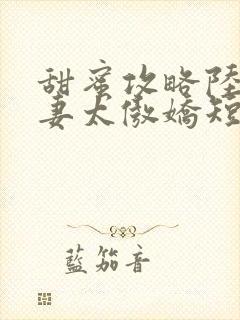 甜蜜攻略陸
妻太傲嬌短
藍笳音